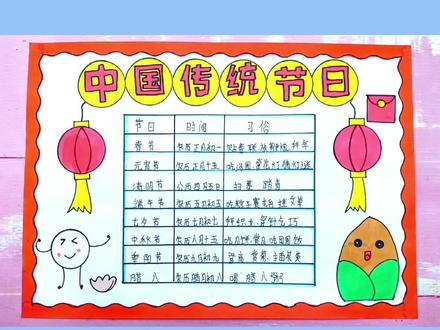 中国传统节日
节日 时间 习俗
春节 农历正月初一 贴春联 拜年
元宵节 农历正月十五 吃汤圆 赏花灯 猜灯谜
清明节 公历四月五日 扫墓 踏青
端午节 农历五月初五 吃粽子 赛龙舟
七夕节 农历七月初七 穿针乞巧
中秋节 农历八月十五 吃月饼 赏月 吃团圆饭
重阳节 农历九月初九 登高 赏菊 插茱萸
腊八 农历腊月初八 喝腊八粥